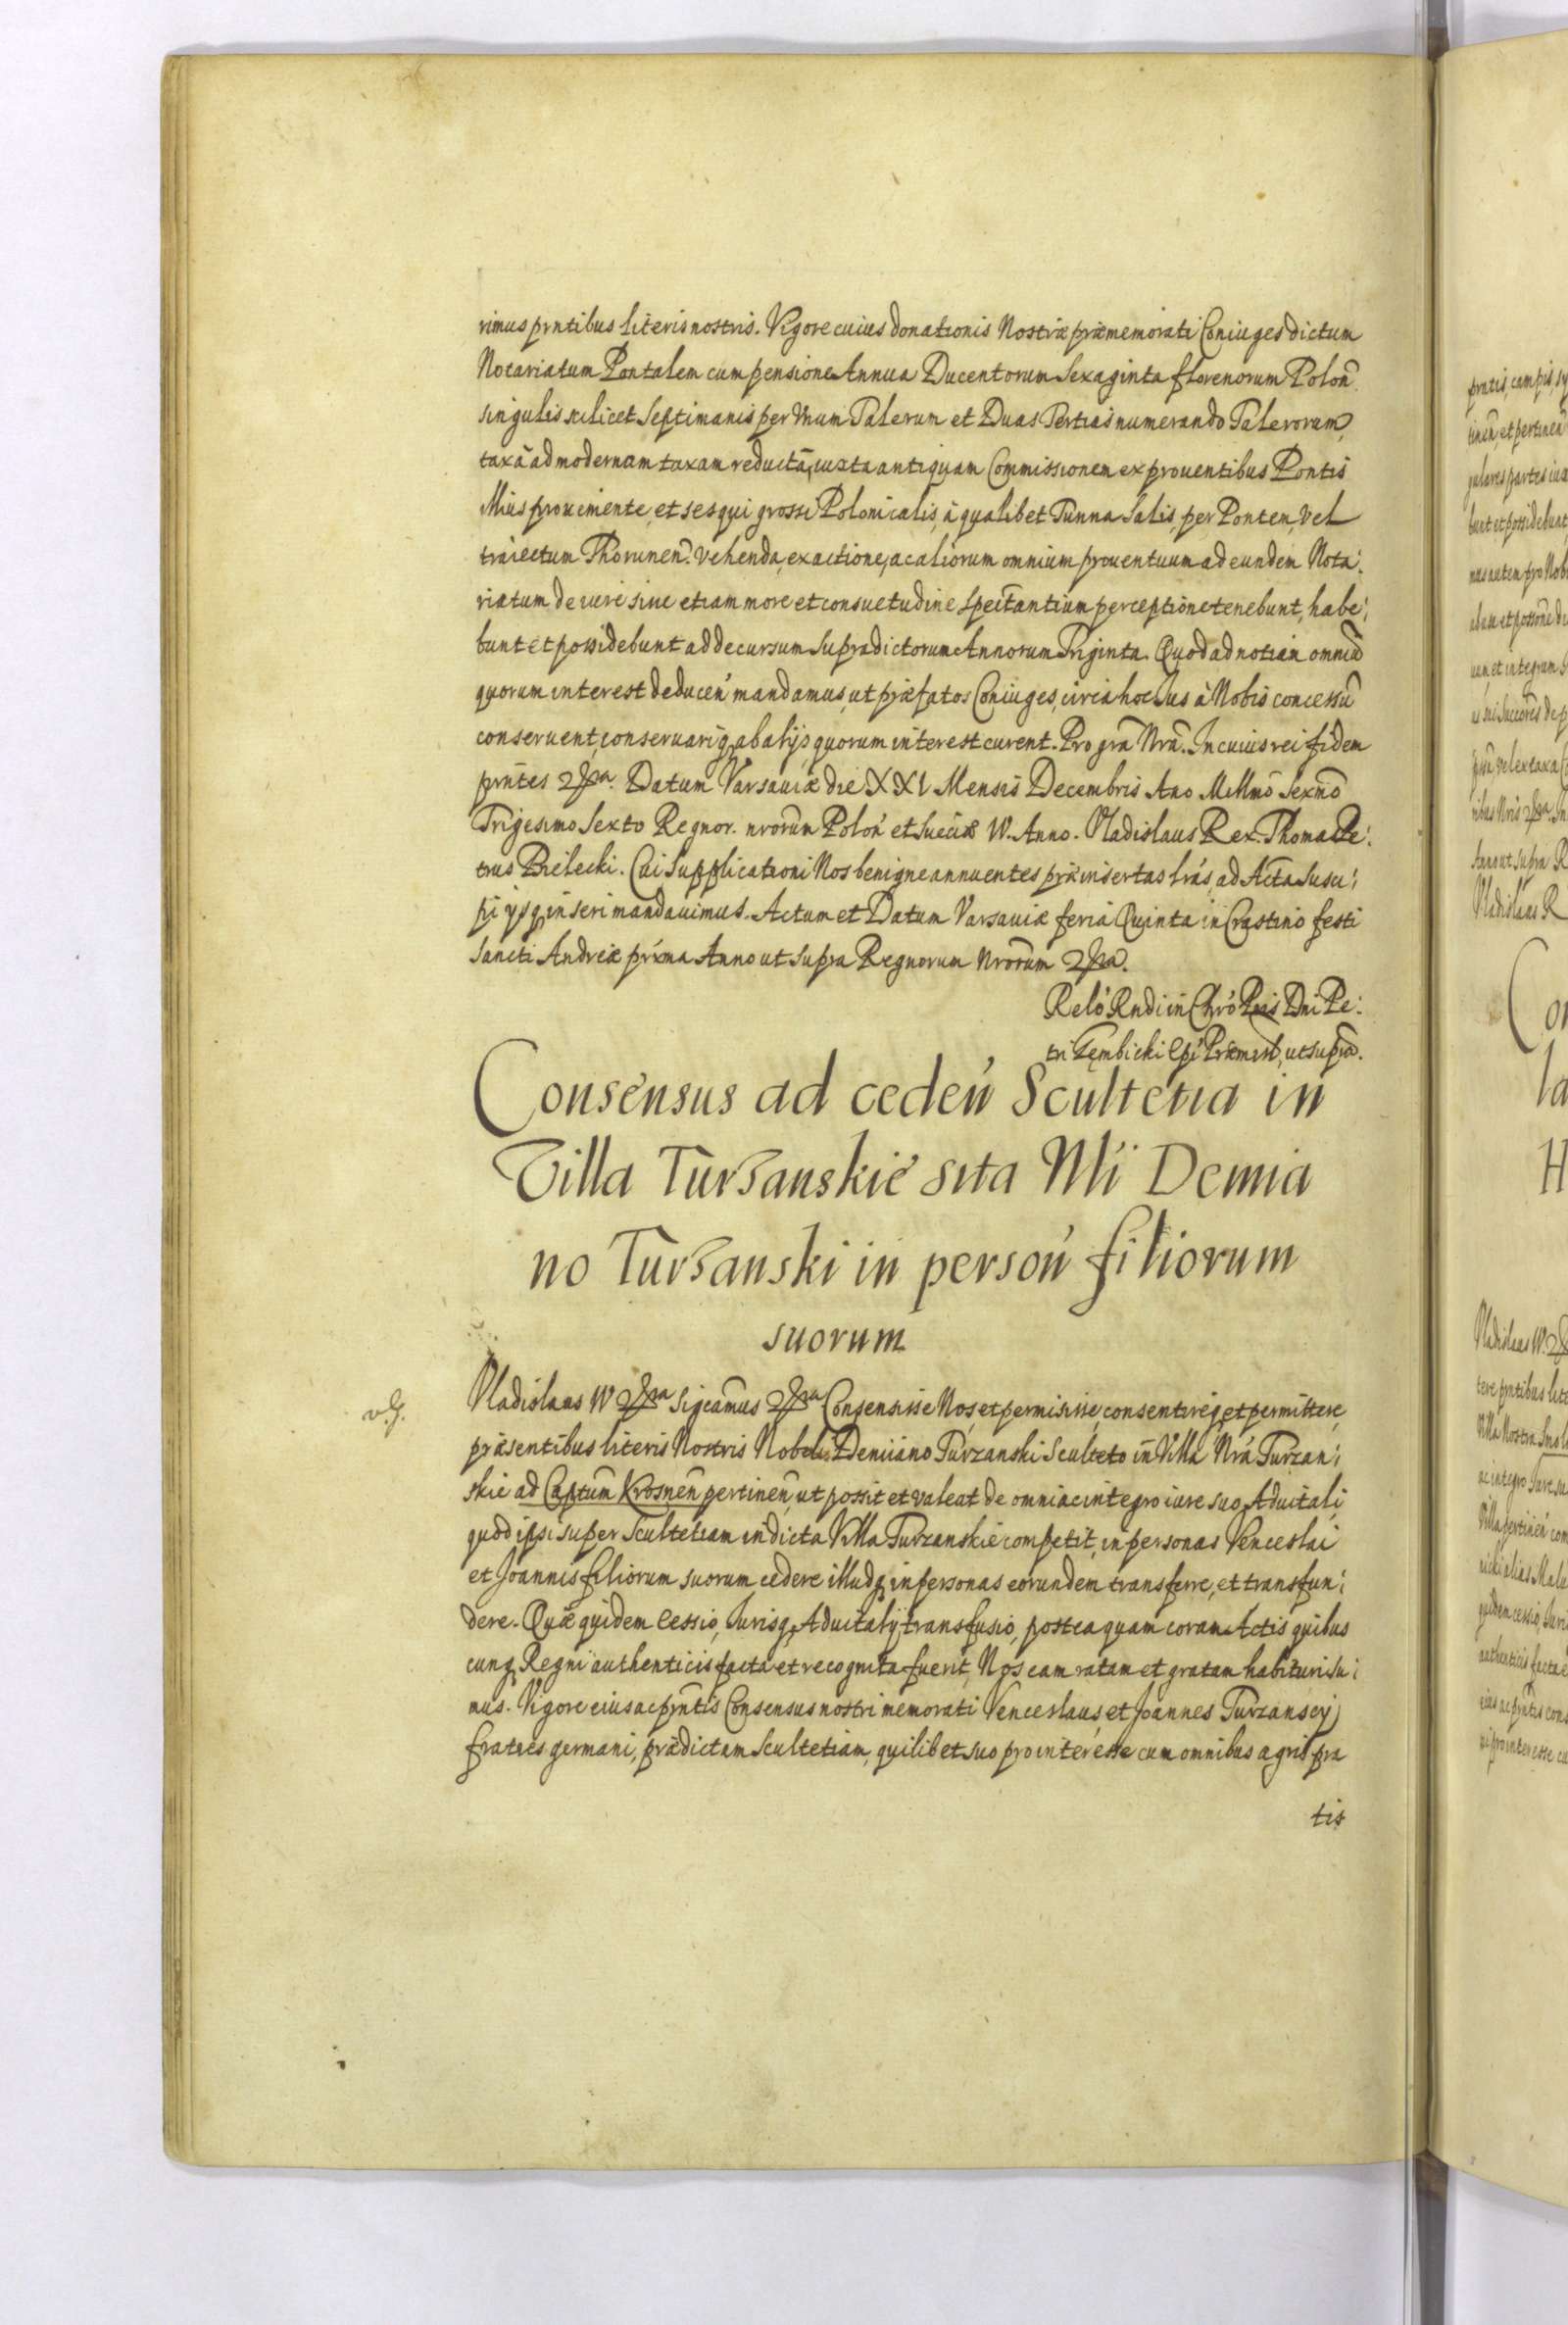 rimus prntibus literis nostris. Vigore cuius donationis Nostræ præmemorati Coniuges dictum
Notariatum Pontalem cum pensione Annua Ducentorum Sexaginta florenorum Polon̄.
singulis scilicet Septimanis per Vnum Talerum et Duas Tertias numerando Talerorum,
taxâ ad modernam taxam reductâ, iuxta antiquam Commissionem ex prouentibus Pontis
illius proueniente, et sesqui grossi Polonicalis, à qualibet Tunna Salis, per Pontem, vel
traiectum Thorunen̄. vehenda, exactione, ac aliorum omnium prouentuum ad eundem Nota:
riatum de iure siue etiam more et consuetudine spectantium perceptione tenebunt, habe:
bunt et possidebunt ad decursum supradictorum Annorum Triginta. Quod ad notiam omniū
quorum interest deducen̄ mandamus, ut præfatos Coniuges, circa hoc Ius à Nobis concessū
conseruent, conseruariq, ab alijs quorum interest curent. Pro gra Nrā. In cuius rei fidem
prntes
Datum Varsauiæ die XXI Mensis Decembris Ano Millmō Sexmō
Trigesimo Sexto Regnor. nrorum Polon̄ et Sueciæ IV. Anno. Vladislaus Rex. Thomas Pe:
trus Bielecki. Cui Supplicationi Nos benigne annuentes præinsertas lrās, ad Acta Susci:
pi ysq, inseri mandauimus. Actum et Datum Varsauiæ feria Quinta in Crastino festi
Sancti Andreæ prima Anno ut supra Regnorum Nrorum
Relō Rndi in Chrō Pris Dni Pe:
tri Gembicki Epi Præmisl, ut supra.
Consensus ad ceden̄ Scultetia in
Villa Turzanskie sita Nli Demia
no Turzanski in person̄ filiorum
suorum
Vladislaus IV
Sigcamus
Consensisse Nos, et permisisse, consentireq, et permittere
præsentibus literis Nostris Nobili Demiano Turzanski Sculteto in Villa Nrā Turzan:
skie ad Captum Krosnen̄ pertinen̄, ut possit et valeat de omni ac integro iure suo Aduitali
quod ipsi super Scultetiam in dicta Villa Turzanskie competit, in personas Venceslai
et Joannis filiorum suorum cedere illudq, in personas eorundem transferre, et transfun:
dere. Quæ quidem Cessio, Iurisq, Aduitalij transfusio, postea quam coram Actis quibus
cunq Regni authenticis facta et recognita fuerit, Nos eam ratam et gratam habituri su:
mus. Vigore eius ac prntis Consensus nostri memorati Venceslaus et Joannes Turzanscy
fratres germani, prædictam Scultetiam, quilibet suo pro interesse cum omnibus agris pra
tis